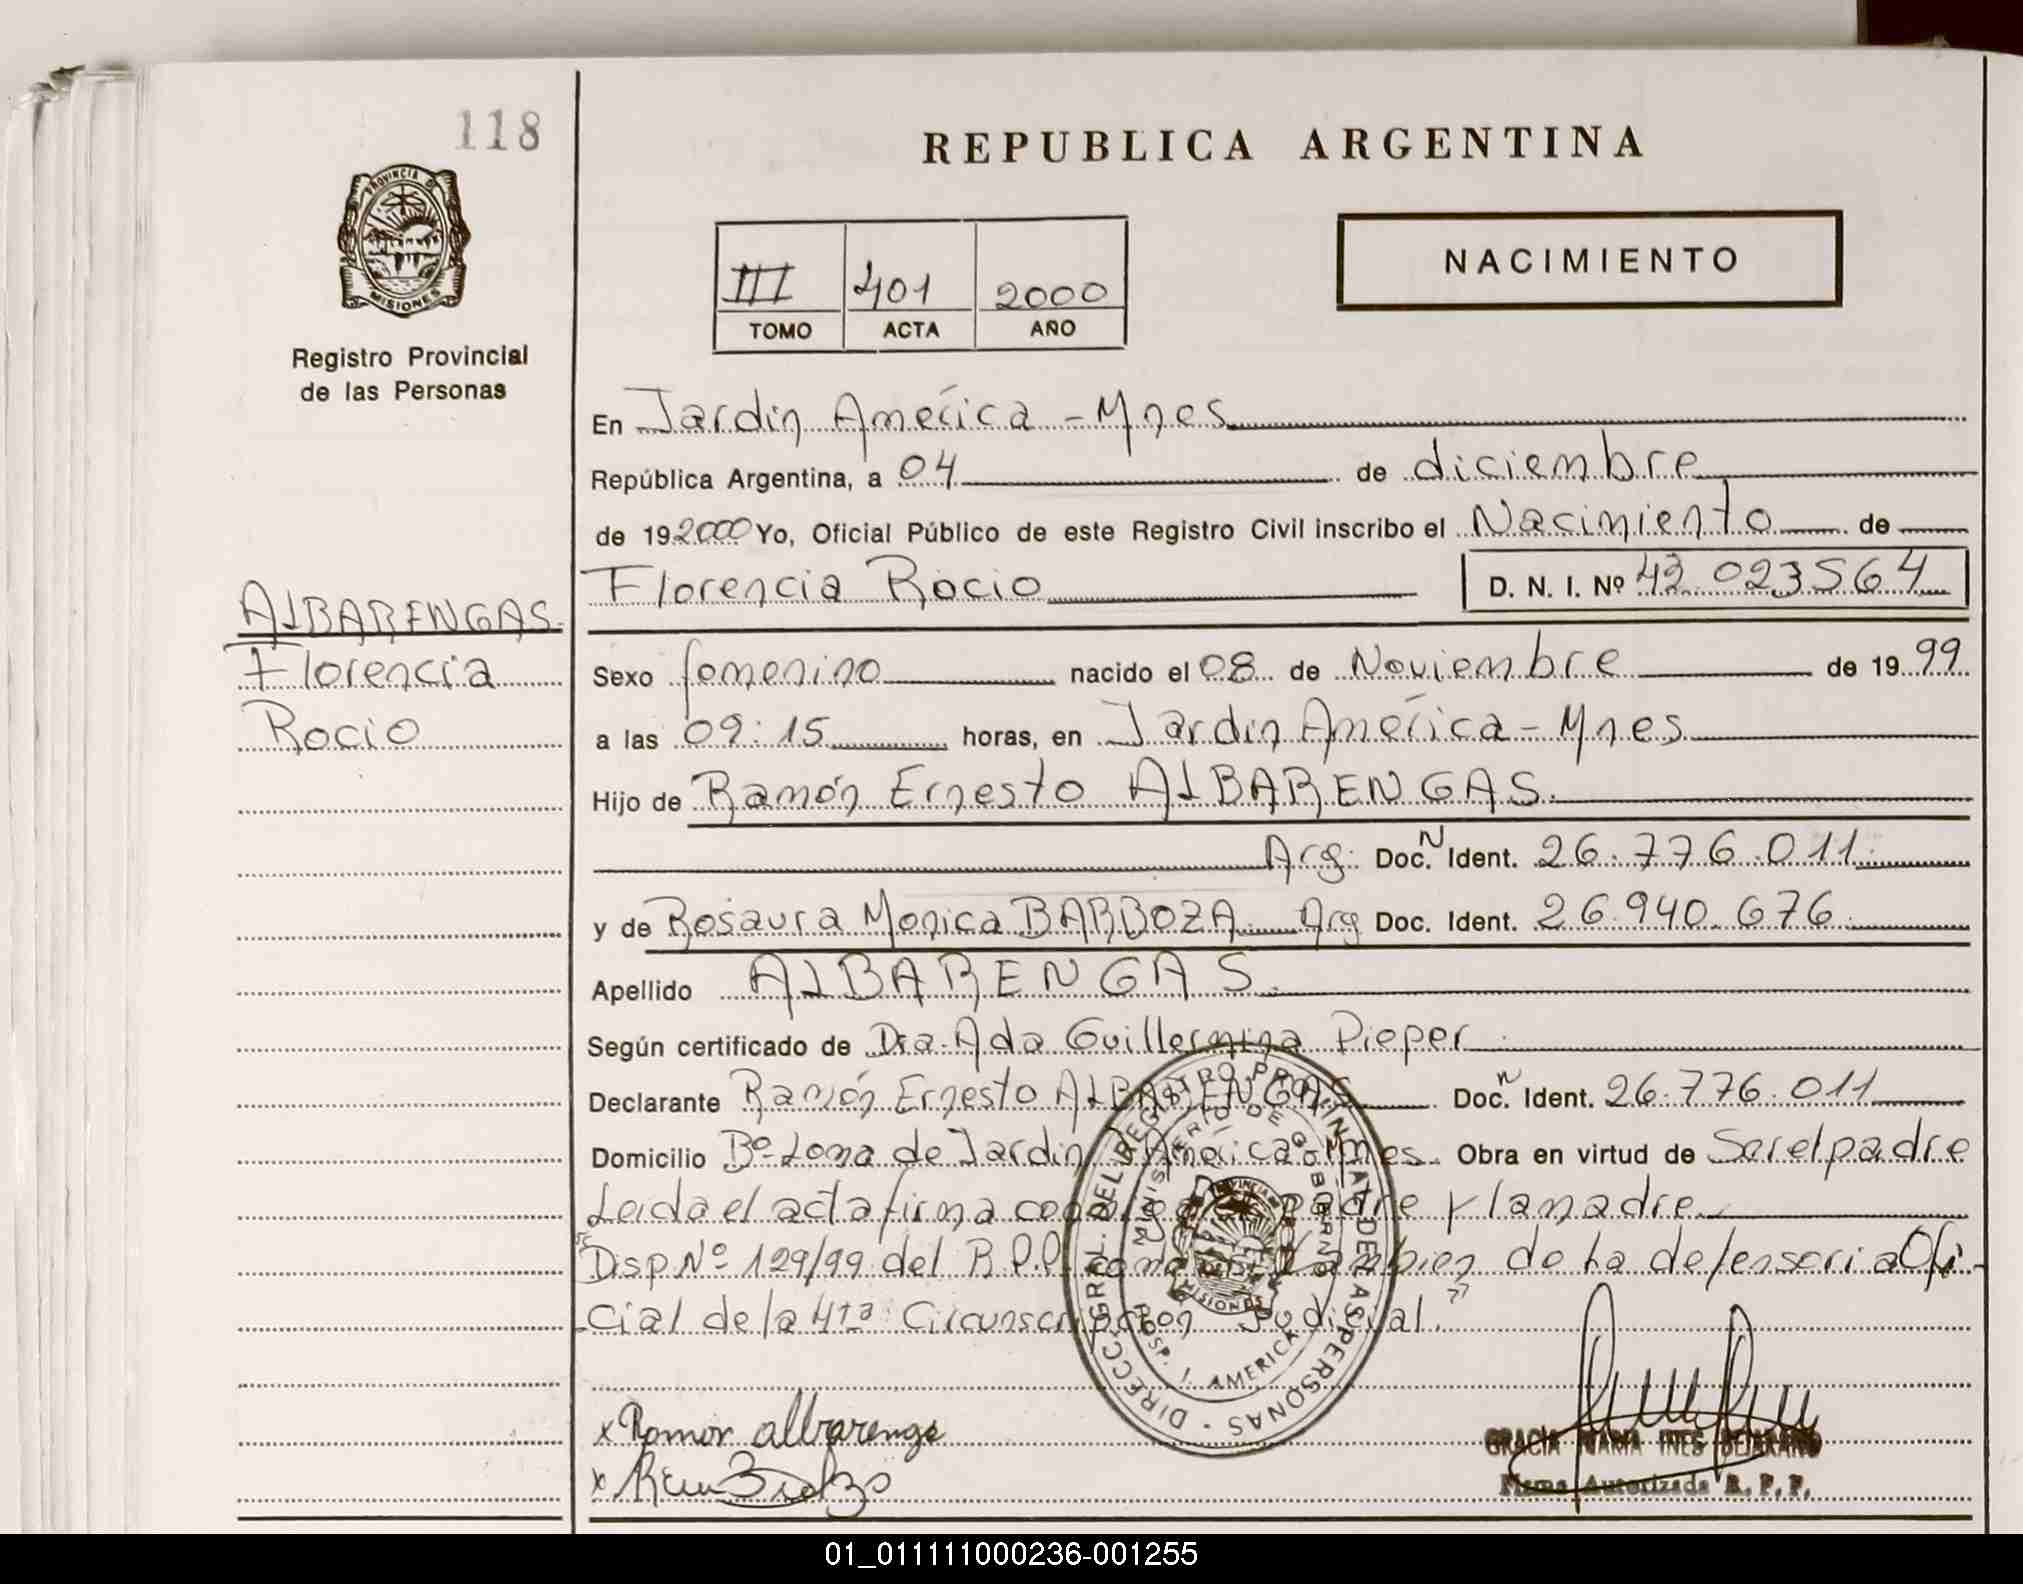 118
PROVINCIA DE
MISIONES
Registro Provincial
de las Personas
REPUBLICA ARGENTINA
III 401 2000
TOMO ACTA AÑO
NACIMIENTO
En Jardin América - Mnes
República Argentina, a 04 de diciembre
de 192000 Yo, Oficial Público de este Registro Civil inscribo el Nacimiento de
Florencia Rocio D. N. I. Nº 42.023564
ALBARENGAS.
Florencia
Rocio
Sexo femenino nacido el 08 de Noviembre de 1999
a las 09:15 horas, en Jardin América - Mnes
Hijo de Ramón Ernesto ALBARENGAS.
Arg. Doc. N Ident. 26.776.011.
y de Rosaura Monica BARBOZA. Arg Doc. Ident. 26.940.676.
Apellido ALBARENGAS.
Según certificado de Dra. Ada Guillermina Pieper.
Declarante Ramón Ernesto ALBARENGAS Doc. n Ident. 26.776.011
Domicilio Bº Loma de Jardin América Mnes. Obra en virtud de Ser el padre
Leida el acta firma conmigo el padre y la madre
"Disp. Nº 129/99 del R.P.P. como así también de la defensoria Ofi-
-cial de la 4ta Circunscripcion Judicial."
DIRECC. GRAL. DEL REGISTRO PROVINCIAL DE LAS PERSONAS
MINISTERIO DE GOBIERNO
HOSP. J. AMERICA
PROVINCIA DE
MISIONES
x Ramon albarenga
x
GRACIA MARIA INES BEJARANO
Firma Autorizada R. P. P.
01_011111000236-001255